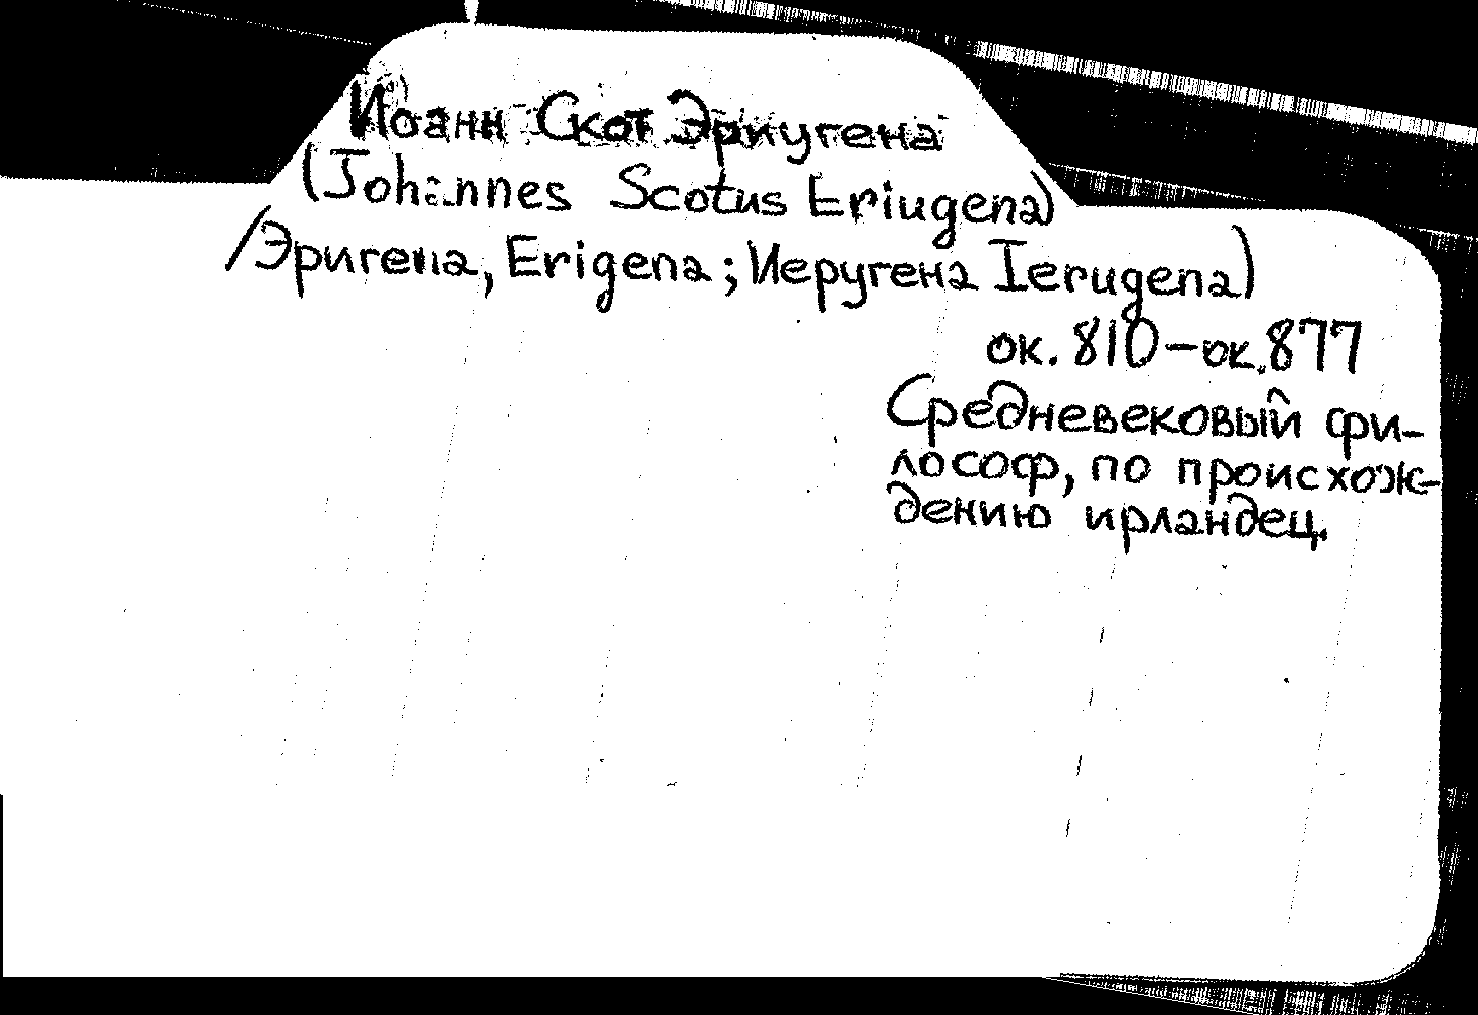 Иоанн Скот Эриугена
(Johannes Scotus Eriugena)
/Эригена, Erigena; Иеругена Ierugena)
ок. 810 – ок. 877
Средневековый фи-
лософ, по происхож-
дению ирландец.